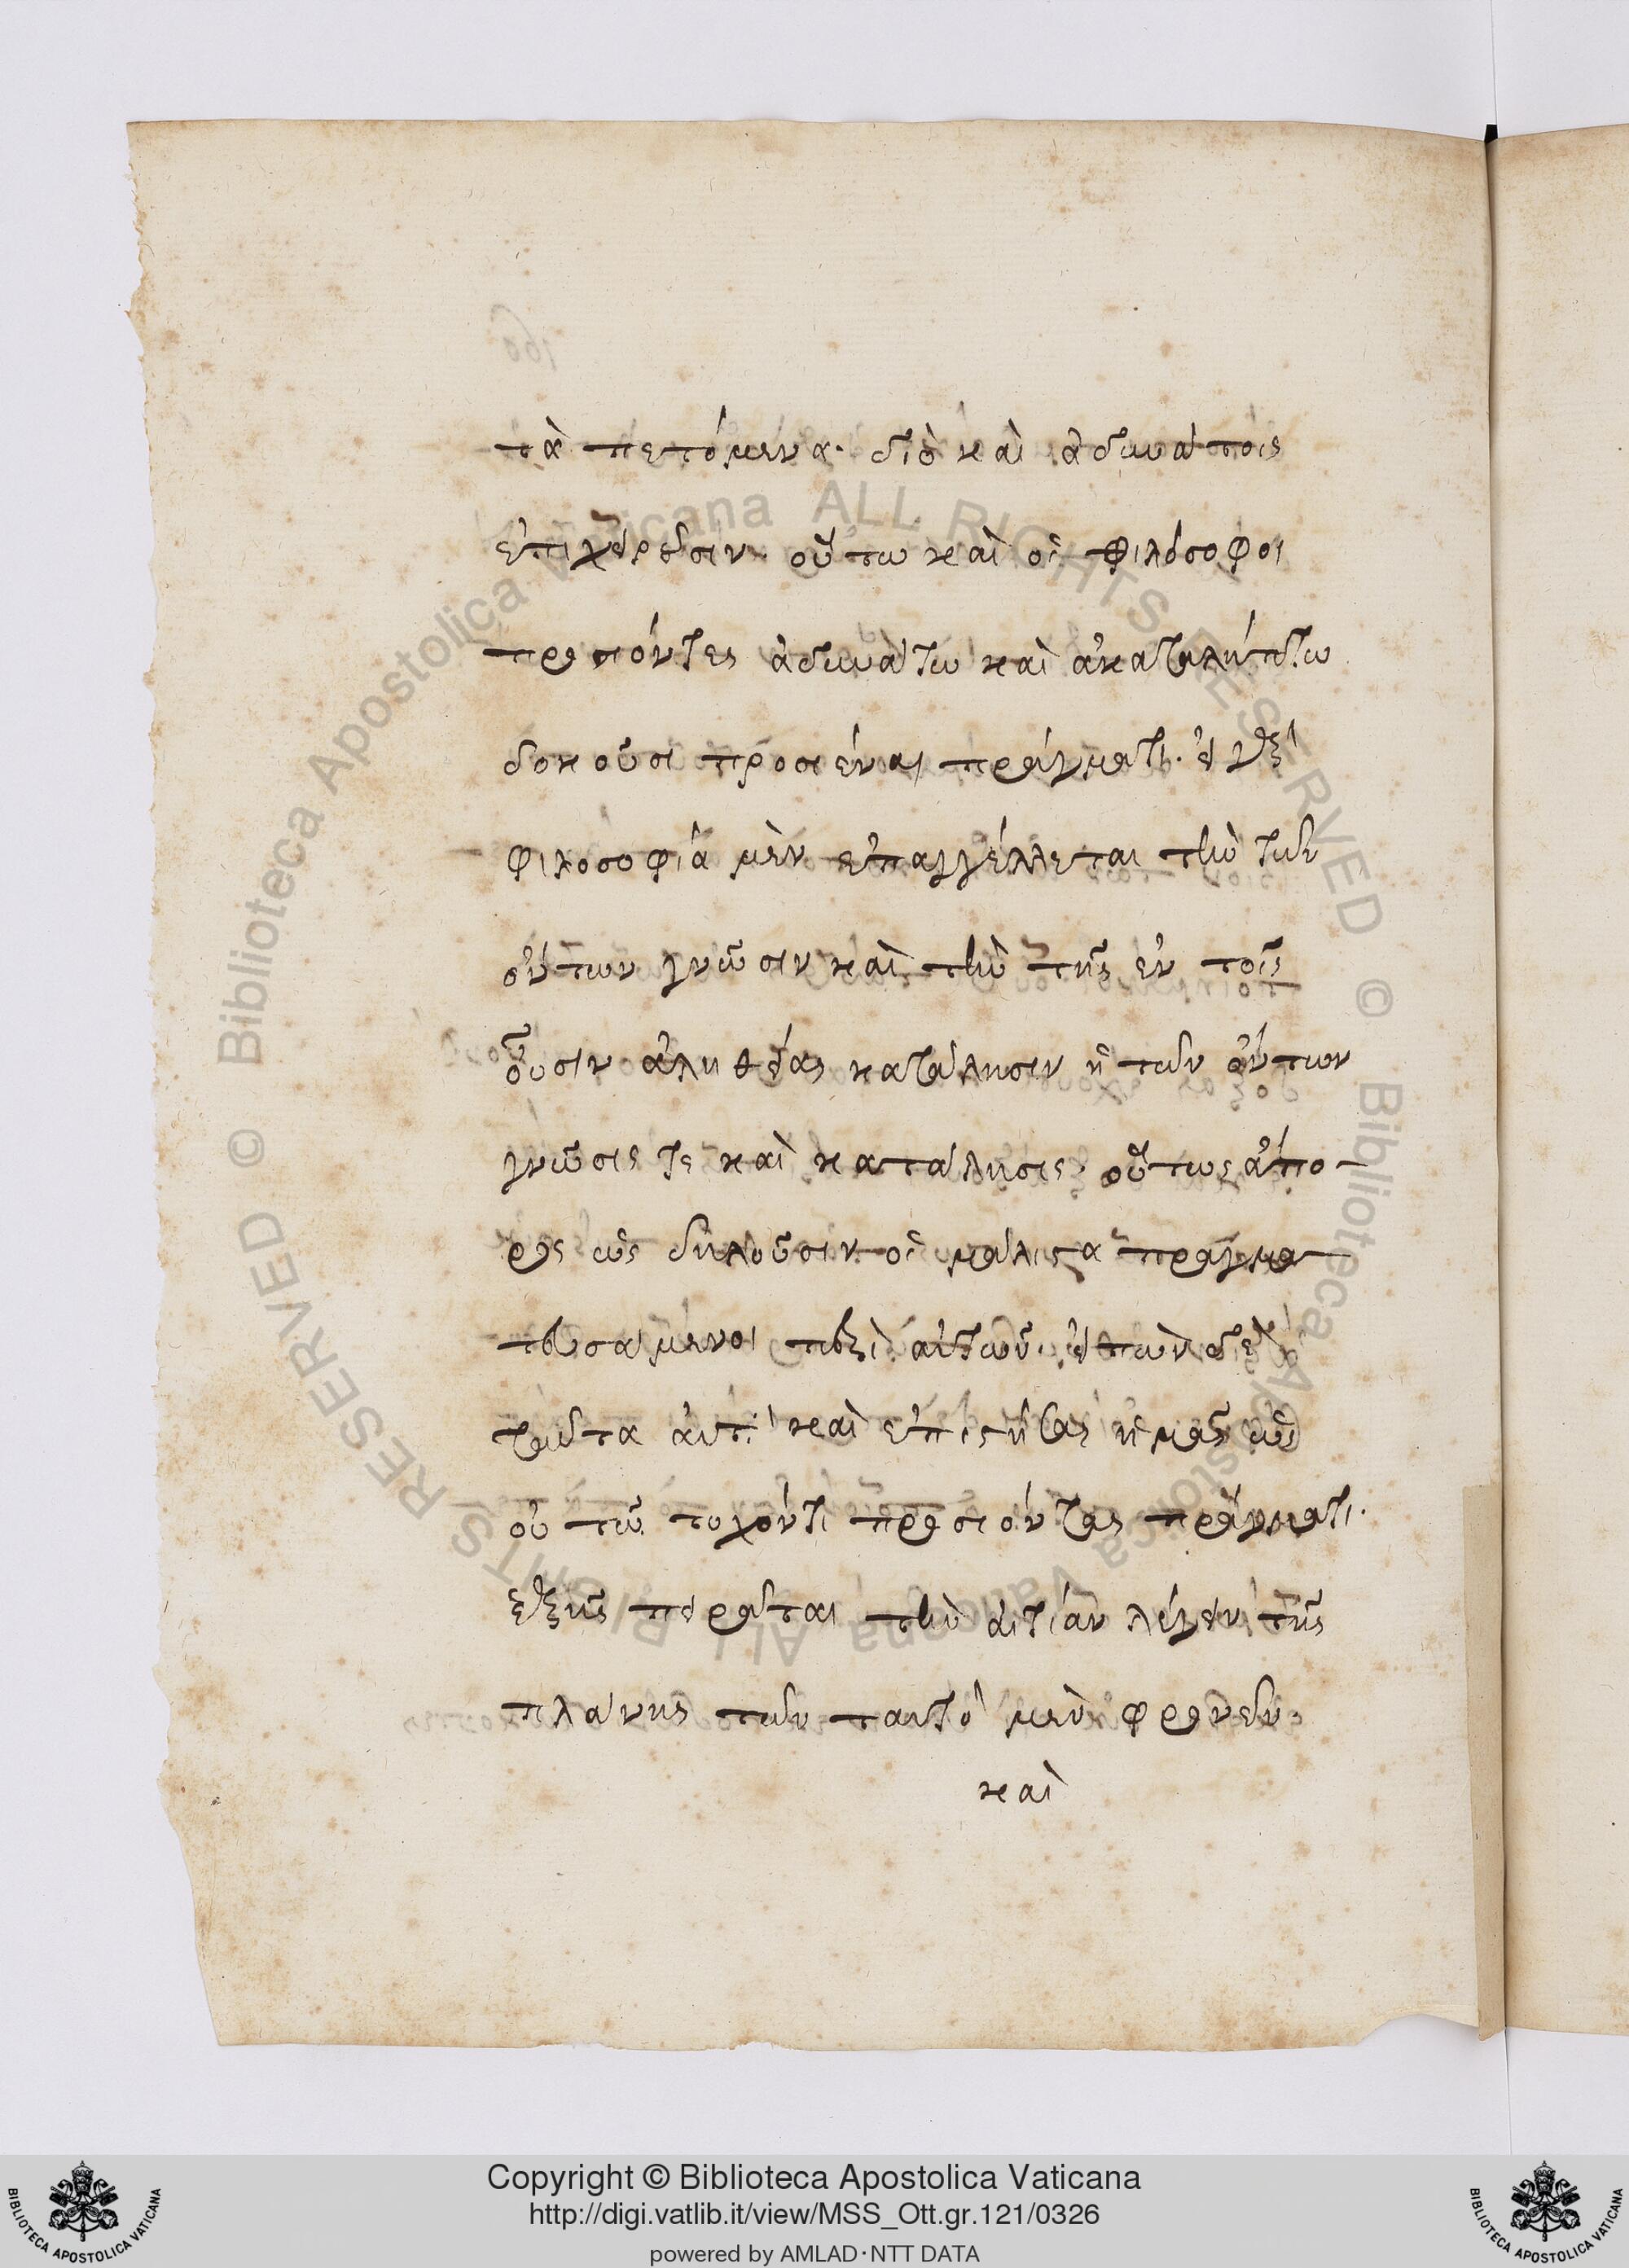 τὰ πετόμενα· διὸ καὶ ἀδυνάτοις
ἐπιχειροῦσιν. οὕτω καὶ οἱ φιλόσοφοι
προσιόντες ἀδυνάτω καὶ ἀκαταλήπτω
δοκοῦσι προσιέναι πράγματι. εἴ γε ἡ
φιλοσοφία μὲν ἐπαγγέλλεται τὴν τῶν
ὄντων γνῶσιν καὶ τὴν τῆς ἐν τοῖς
οὖσιν ἀληθείας κατάλησιν ἡ τῶν ὄντων
γνῶσις τε καὶ κατάλησις οὕτως ἄπο-
ρος ὡς δηλοῦσιν οἱ μάλιστα πραγμα
τευσάμενοι περὶ αὐτῶν. εἰπὼν δὲ
ταῦτα καὶ ἐπιστήσας ἡμᾶς ὡς
οὐ τῶ τυχόντι προσιόντας πράγματι.
ἑξῆς πειρᾶται τὴν αἰτίαν λέγειν τῆς
πλάνης τῶν ταυτὸ μὲν φρονεῖν
καὶ
Copyright © Biblioteca Apostolica Vaticana
http://digi.vatlib.it/view/MSS_Ott.gr.121/0326
powered by AMLAD·NTT DATA
© Biblioteca Apostolica Vaticana ALL RIGHTS RESERVED
© Biblioteca Apostolica Vaticana ALL RIGHTS RESERVED
BIBLIOTECA APOSTOLICA VATICANA
BIBLIOTECA APOSTOLICA VATICANA